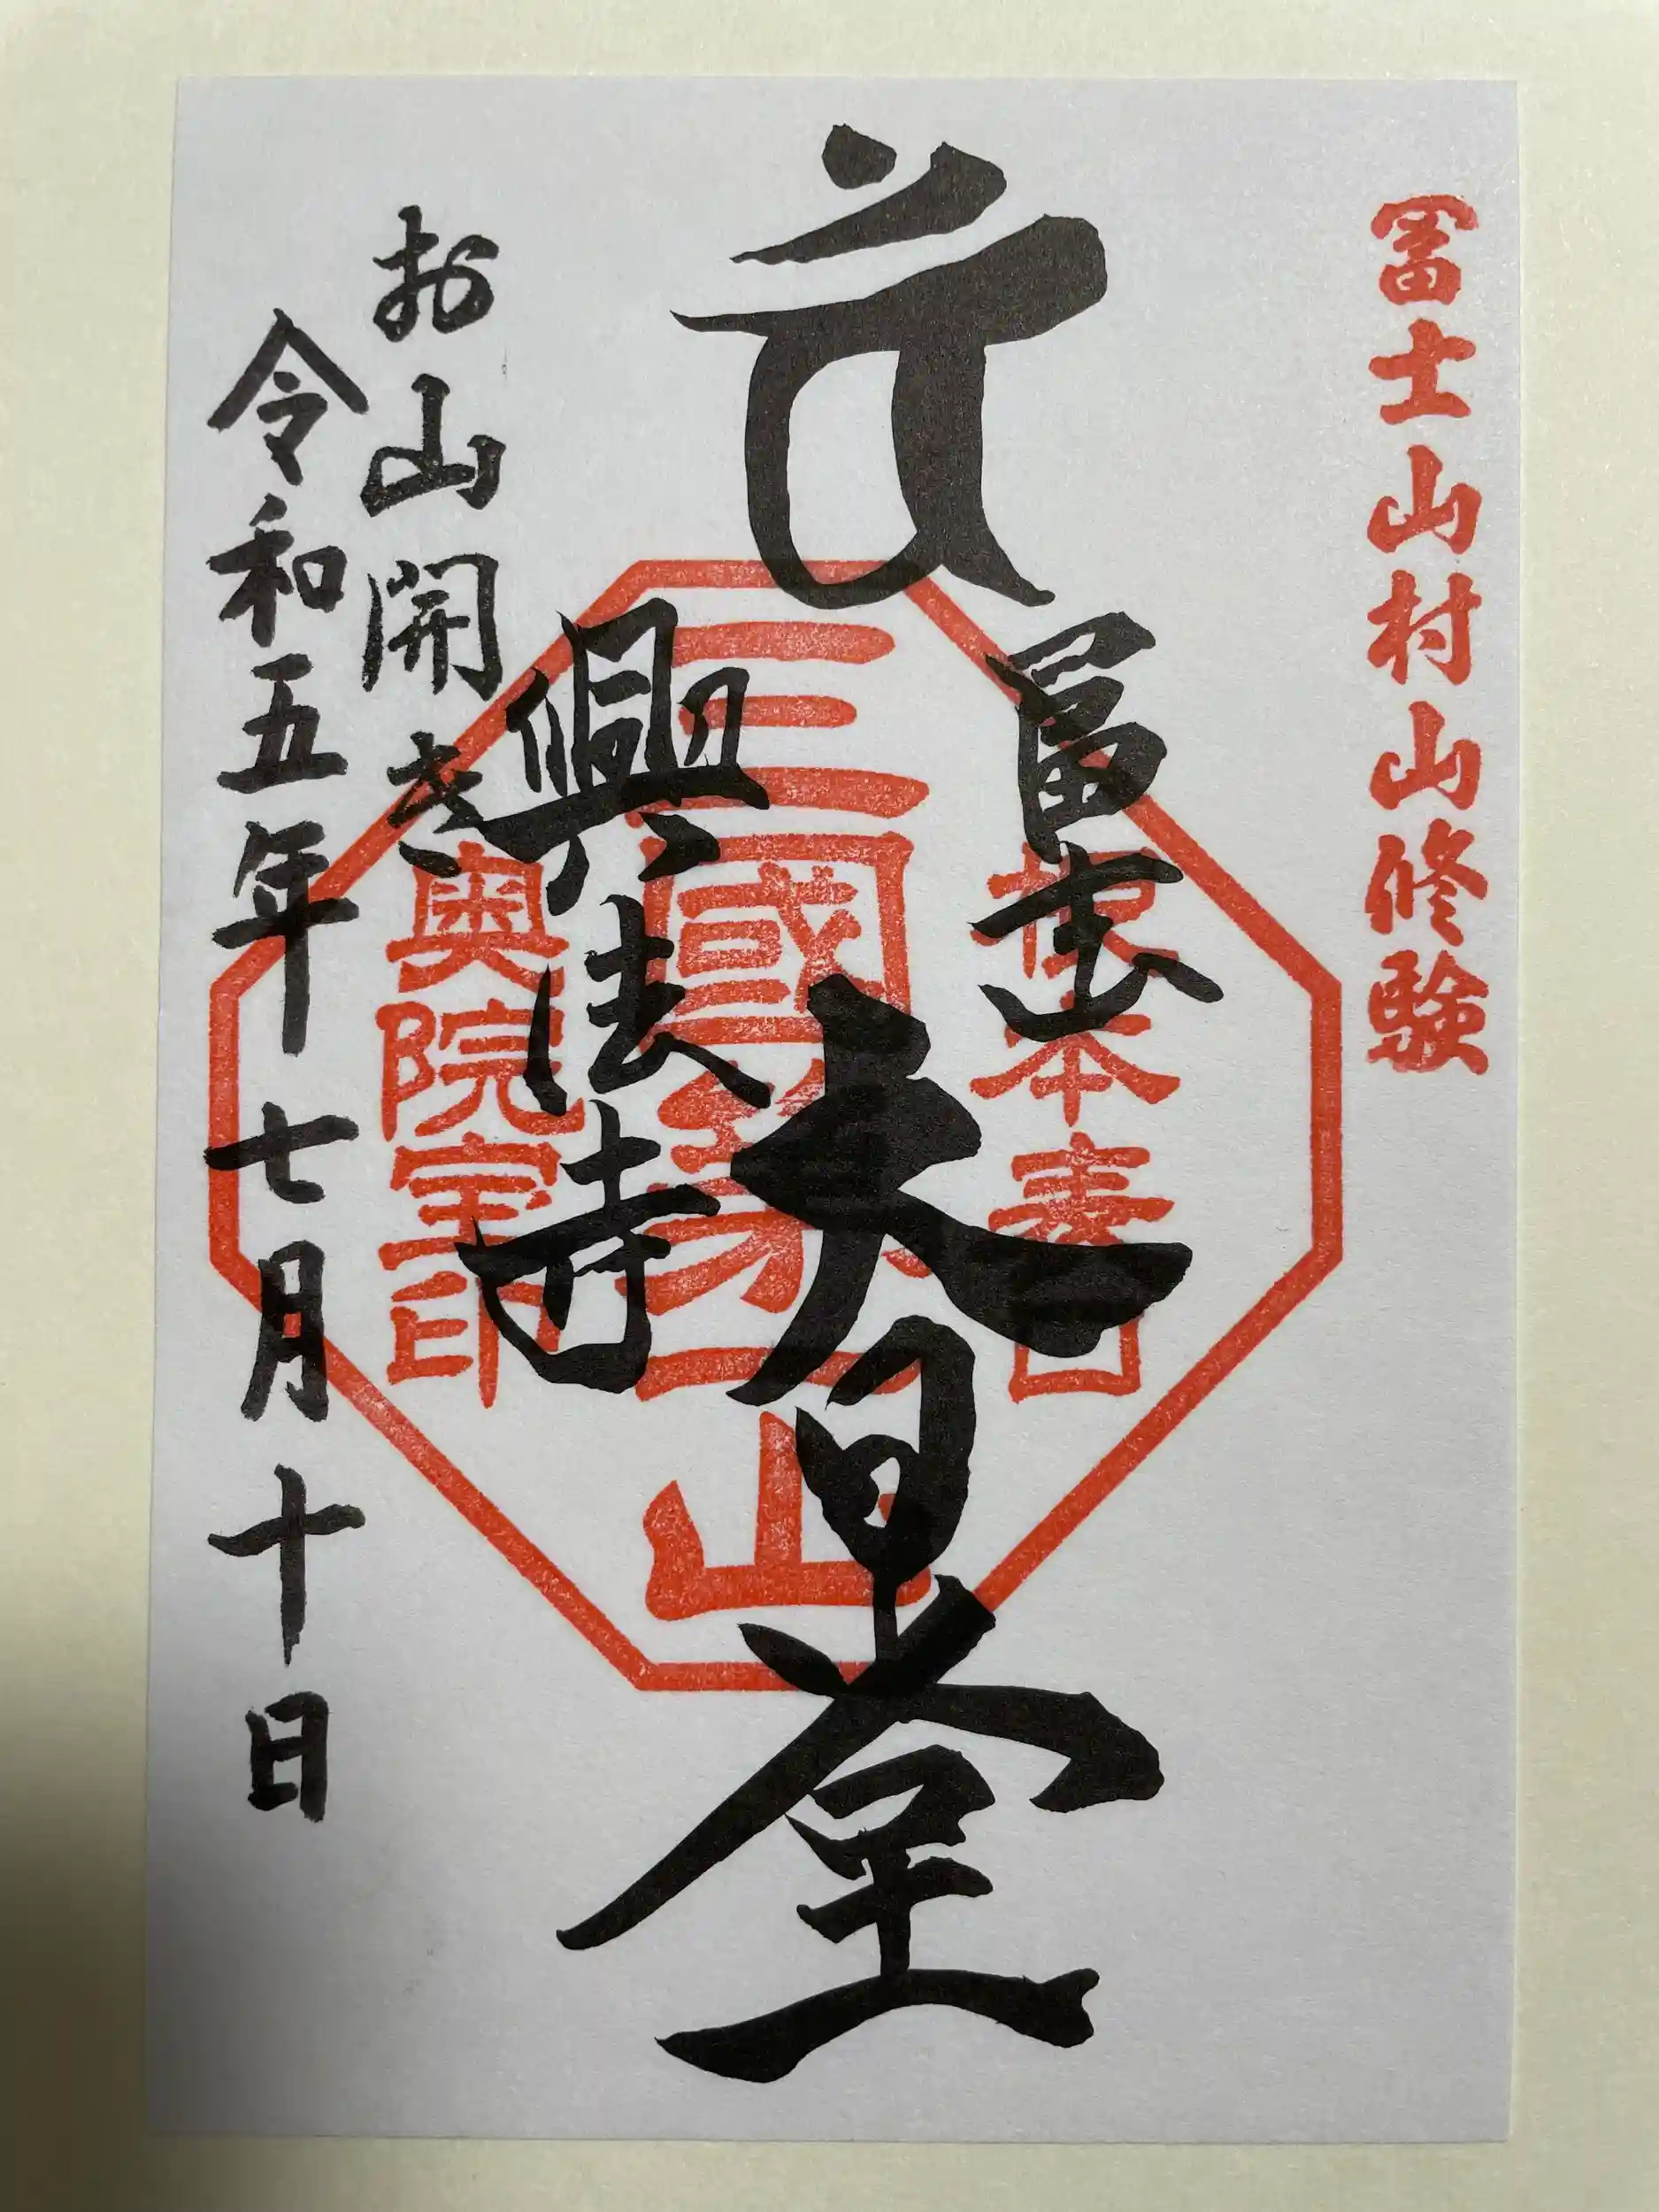 冨士山村山修験
冨士
大日堂
興法寺
根本表口
三國第一山
奥院宝印
お山開き
令和五年七月十日